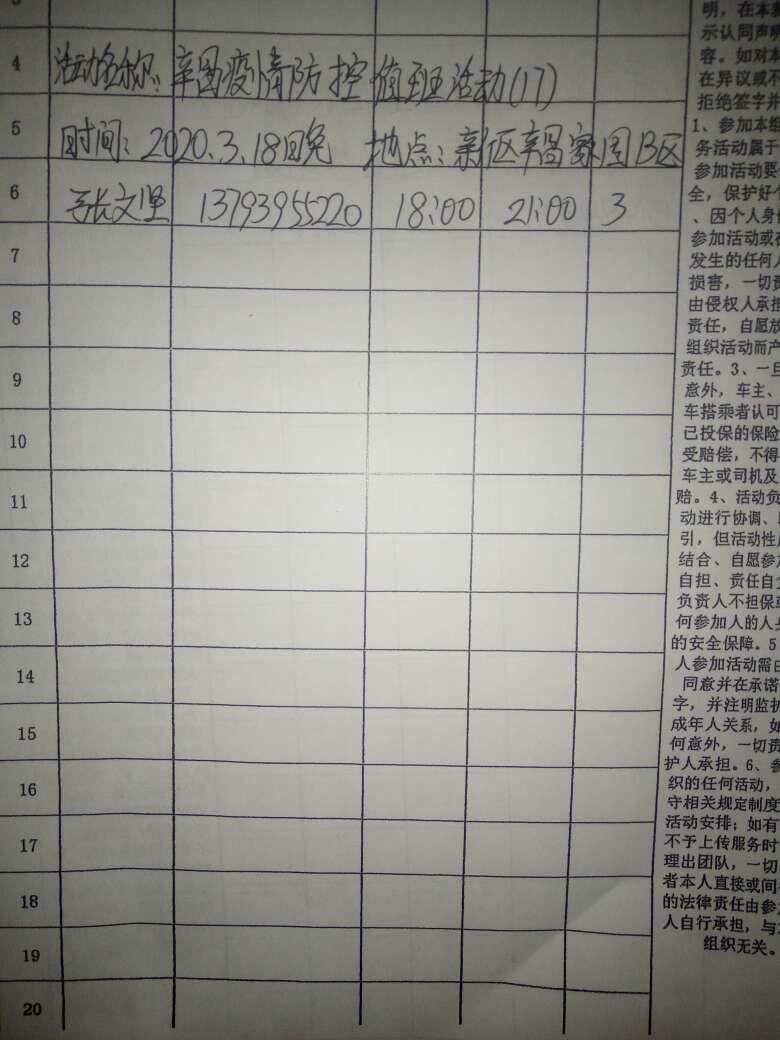 4 活动名称:辛昌疫情防控值班活动(17)
5 时间:2020.3.18日晚 地点:新区辛昌家园B区
6 张文坚 13793955220 18:00 21:00 3
7
8
9
10
11
12
13
14
15
16
17
18
19
20
明,在本
示认同声明
容。如对本
在异议或不
拒绝签字并
1、参加本组
务活动属于
参加活动要
全,保护好个
、因个人身
参加活动或在
发生的任何人
损害,一切责
由侵权人承担
责任,自愿放
组织活动而产
责任。3、一旦
意外,车主、
车搭乘者认可
已投保的保险
受赔偿,不得
车主或司机及
赔。4、活动负
动进行协调、
引,但活动性
结合、自愿参
自担、责任自
负责人不担保
何参加人的人身
的安全保障。5
人参加活动需
同意并在承诺
字,并注明监护
成年人关系,如
何意外,一切责
护人承担。6、参
织的任何活动,
守相关规定制度
活动安排;如有
不予上传服务时
理出团队,一切
者本人直接或间
的法律责任由参
人自行承担,与
组织无关。